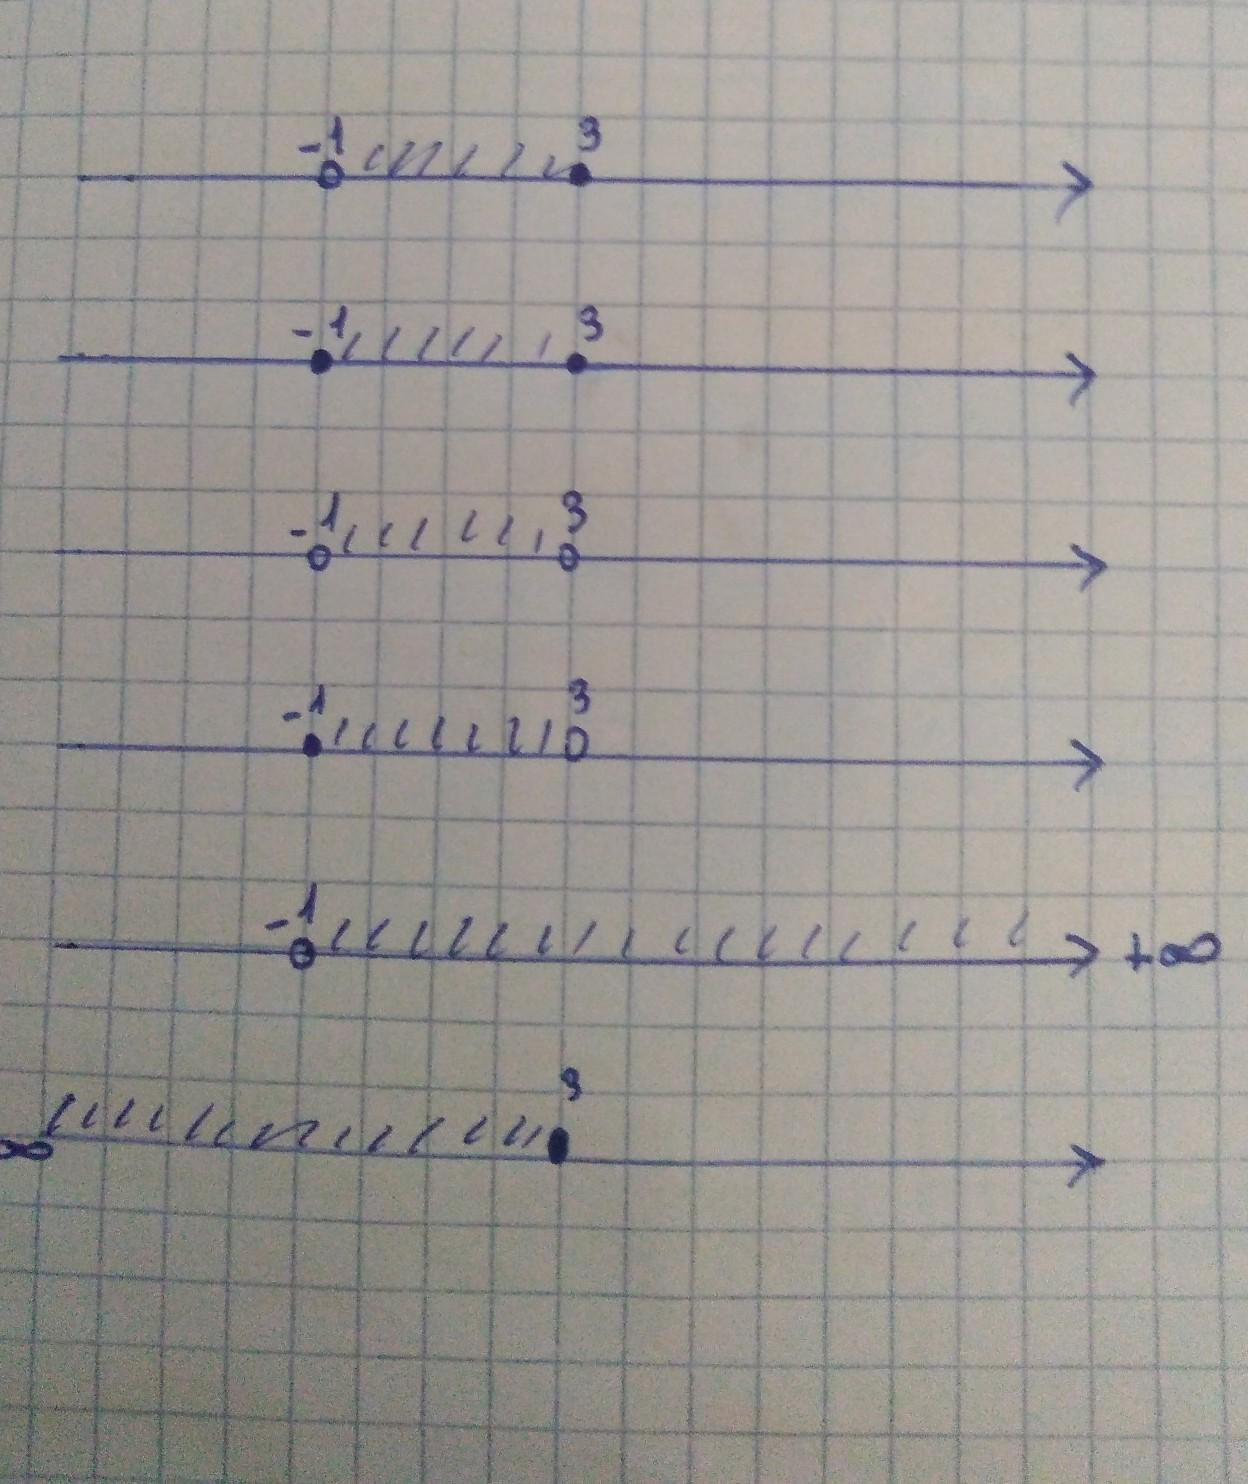 -1 3
-1 3
-1 3
-1 3
-1 +∞
∞ 3